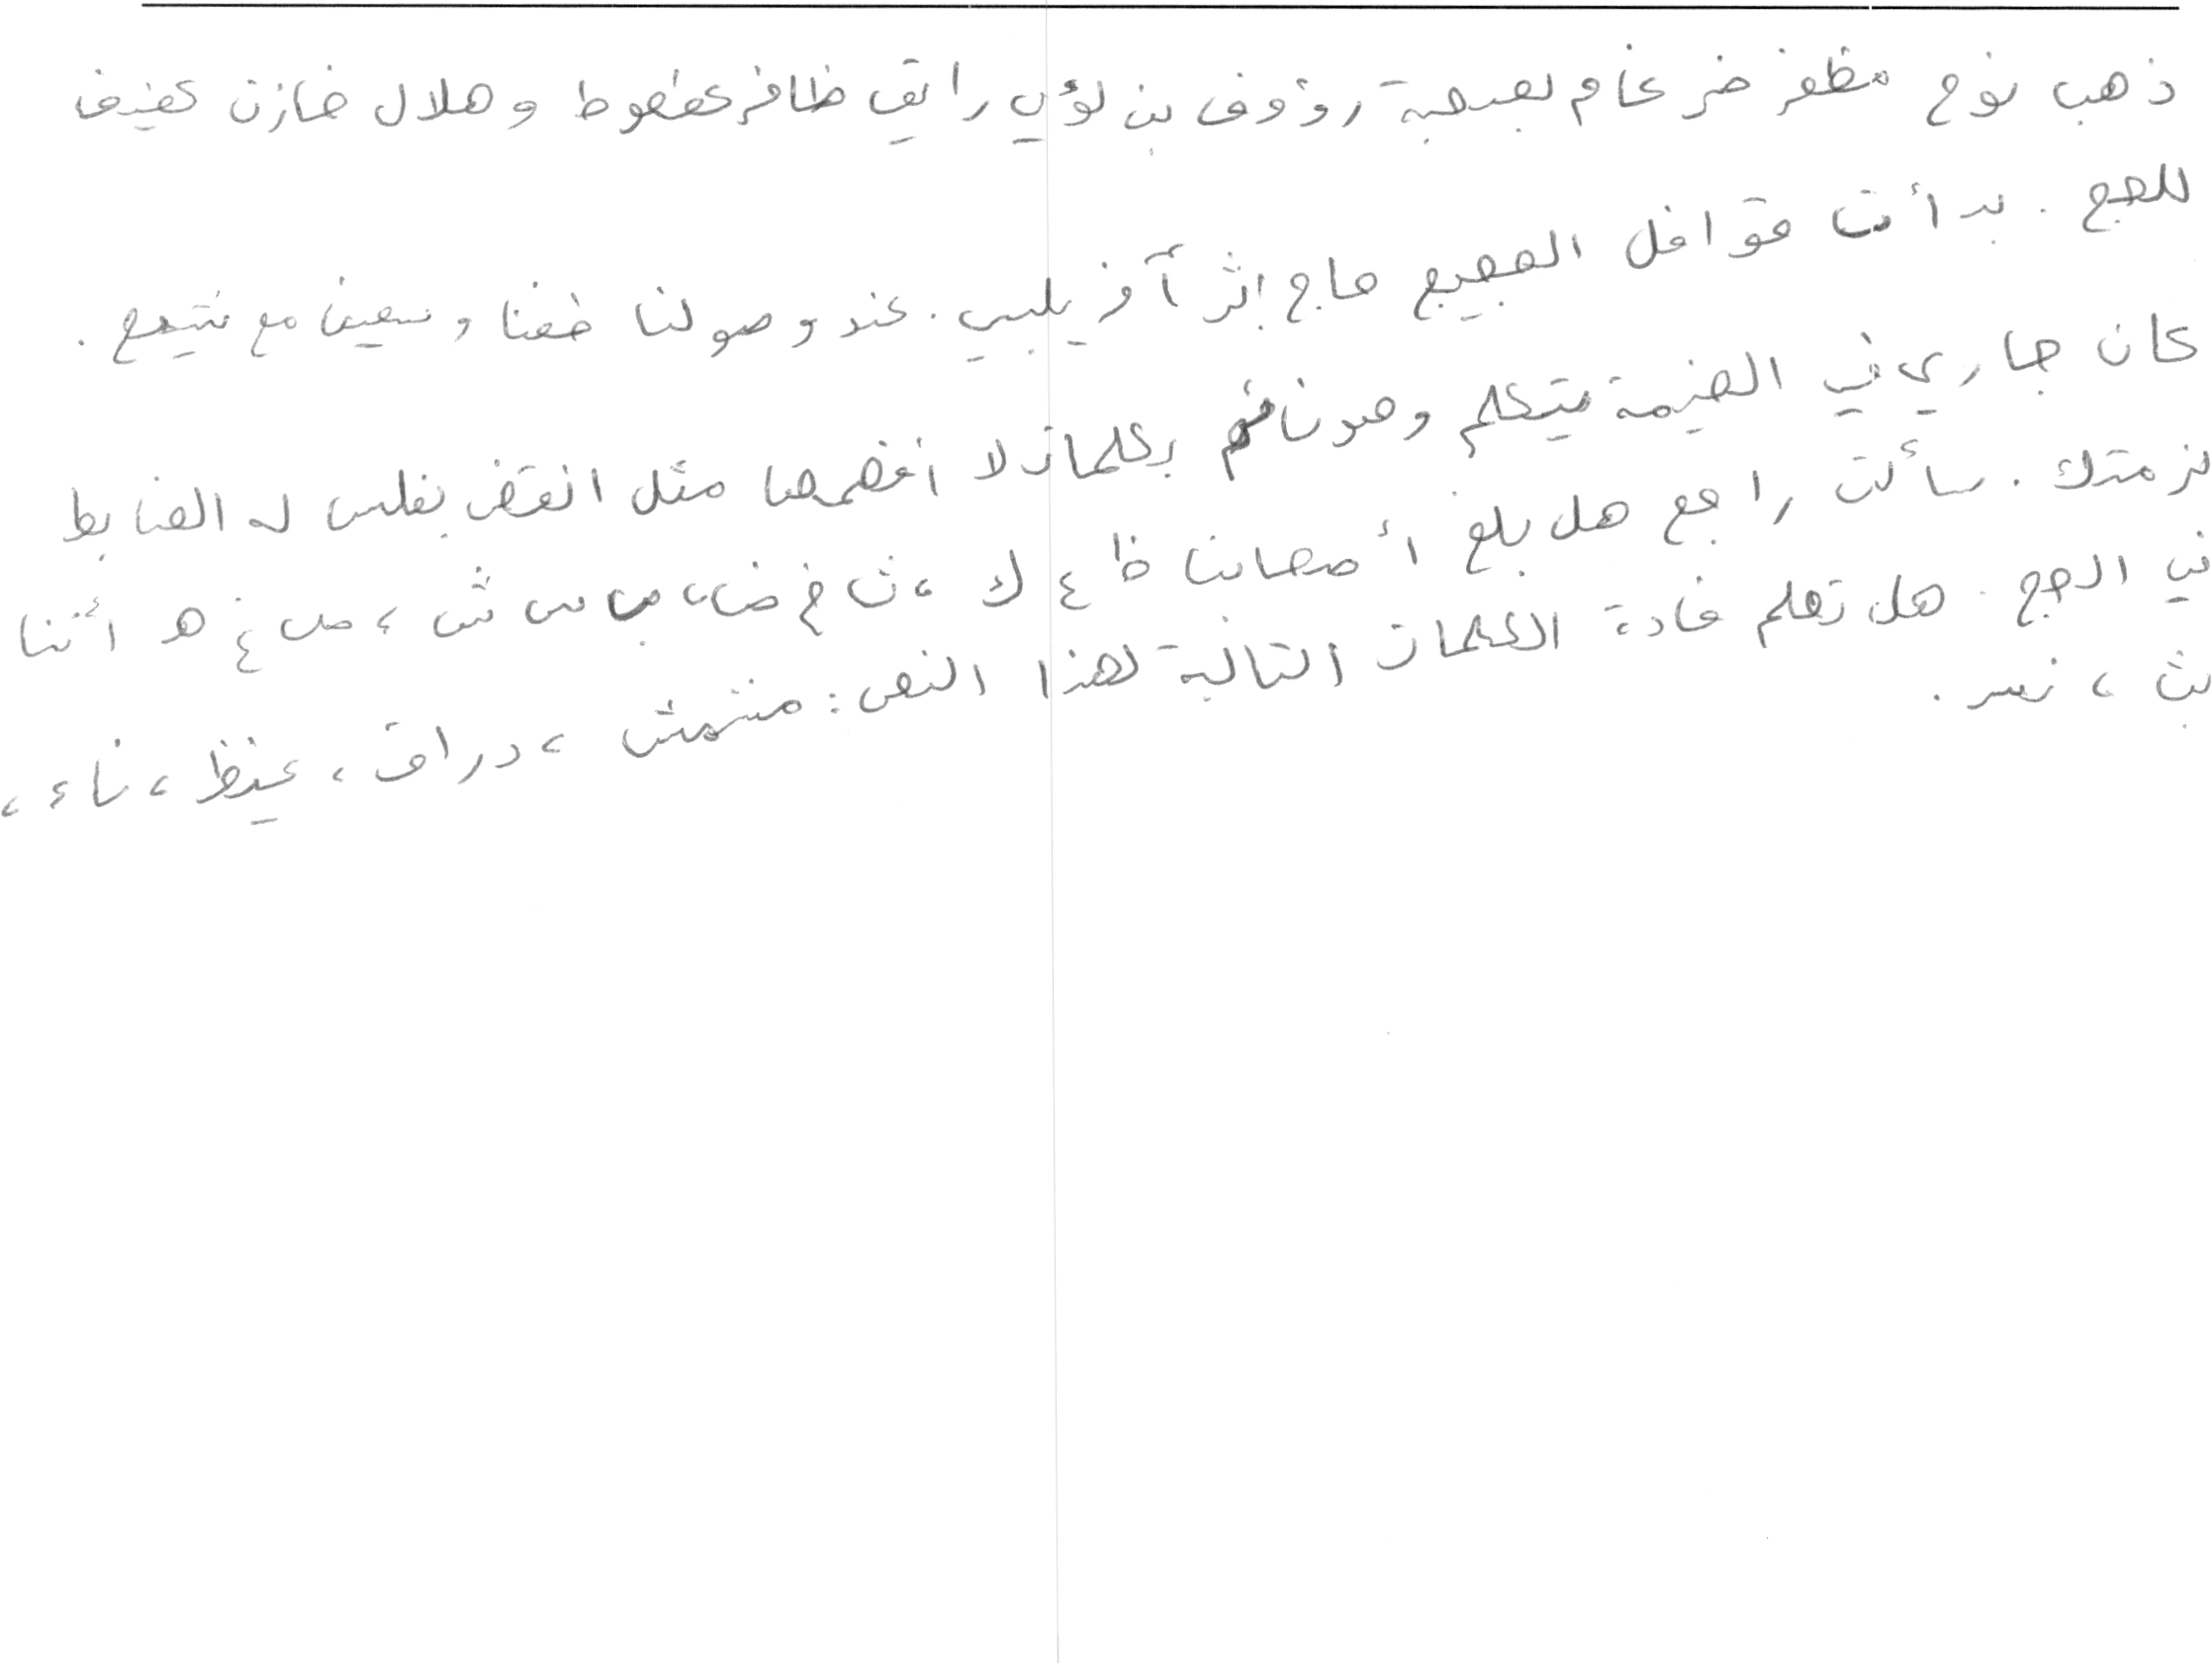 ذهب نوح مظفر ضرغام بصحبة رؤوف بن لؤي رائق ظافر محظوظ وهلال خازن عفيف
للحج . بدأت قوافل الحجيج حاج إثر آخر يلبي . عند وصولنا خفنا وسعينا مع شيخ .
كان جاري في الخيمة يتكلم وهو نائم بكلمات لا أفهمها مثل انقض بفلس له الضابط
لزمتك . سألت راجح هل بلغ أصحابنا ظ ء ك ، ث خ ض ، ب س ش ، ص غ ه أثنا
في الحج . هل تعلم غادة الكلمات التالية لهذا النص : مشمش ، دراق ، غيظ ، ناء ،
بث ، نسر .